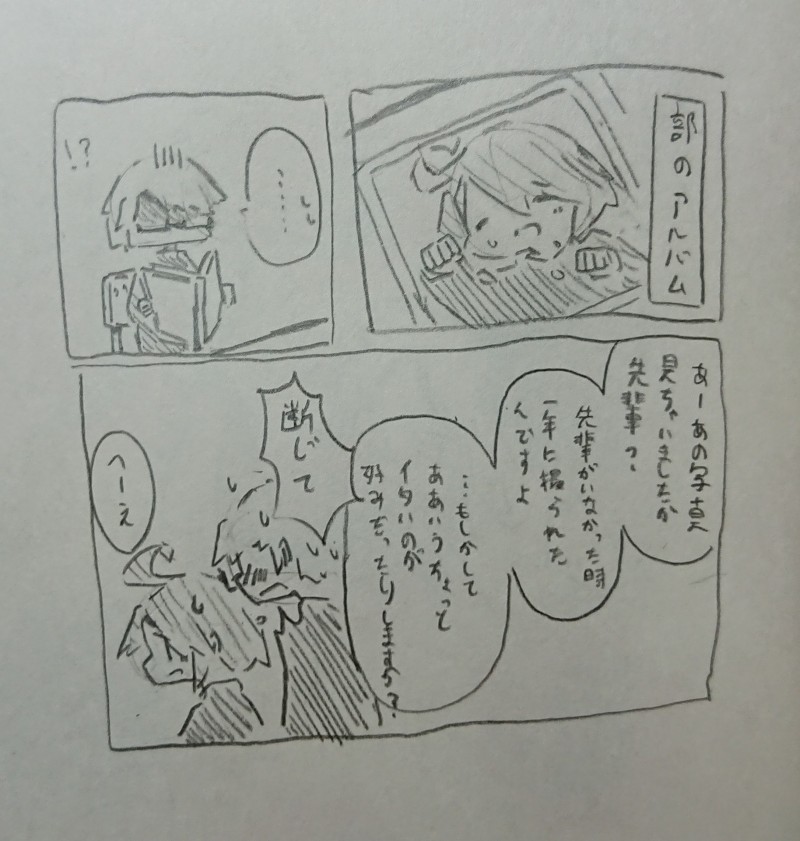 部のアルバム
……
!?
あーあの写真
見ちゃいましたか
先輩っ、
先輩がいなかった時
一年に撮られた
んですよ
…もしかして
ああいうちょっと
イタいのが
好みだったりしますか?
断じて
へーえ